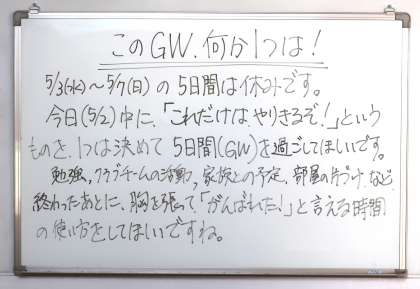 このGW、何か1つは!
5/3(水)〜5/7(日)の5日間は休みです。
今日(5/2)中に、「これだけは やりきるぞ!」という
ものを、1つは決めて5日間(GW)を過ごしてほしいです。
勉強、クラブチームの活動、家族との予定、部屋の片づけ、など
終わったあとに、胸を張って「がんばれた!」と言える時間
の使い方をしてほしいですね。